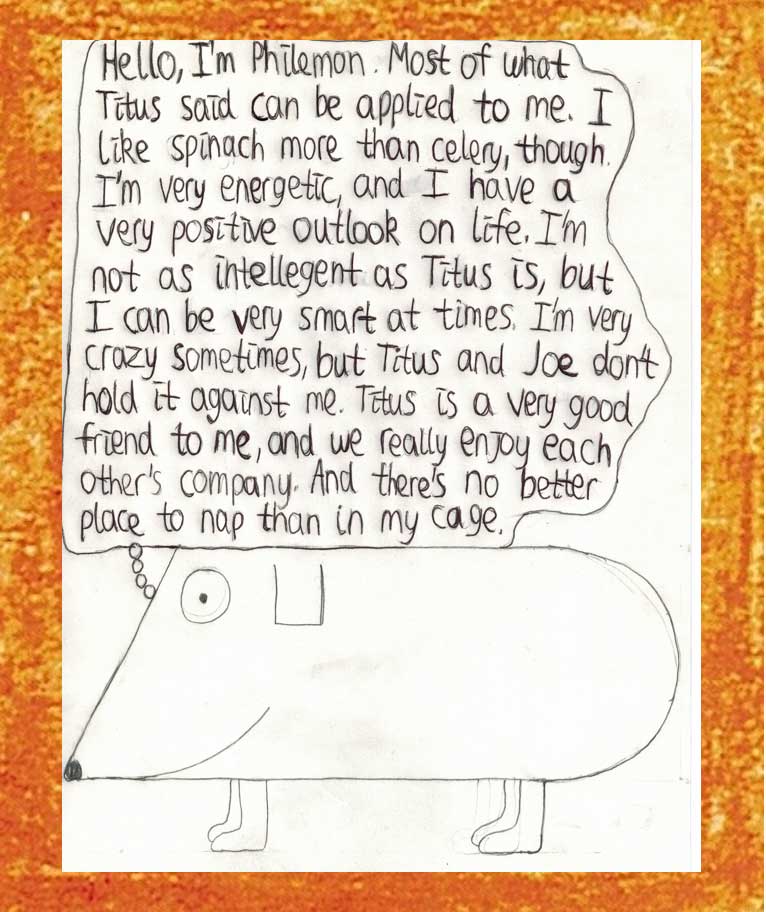 Hello, I'm Philemon. Most of what
Titus said can be applied to me. I
like spinach more than celery, though.
I'm very energetic, and I have a
very positive outlook on life. I'm
not as intellegent as Titus is, but
I can be very smart at times. I'm very
crazy sometimes, but Titus and Joe don't
hold it against me. Titus is a very good
friend to me, and we really enjoy each
other's company. And there's no better
place to nap than in my cage.